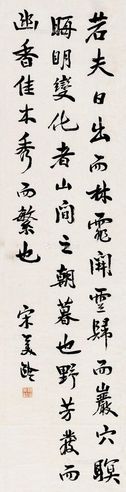 若夫日出而林霏開雲歸而巖穴暝
晦明變化者山間之朝暮也野芳發而
幽香佳木秀而繁也
宋美齡